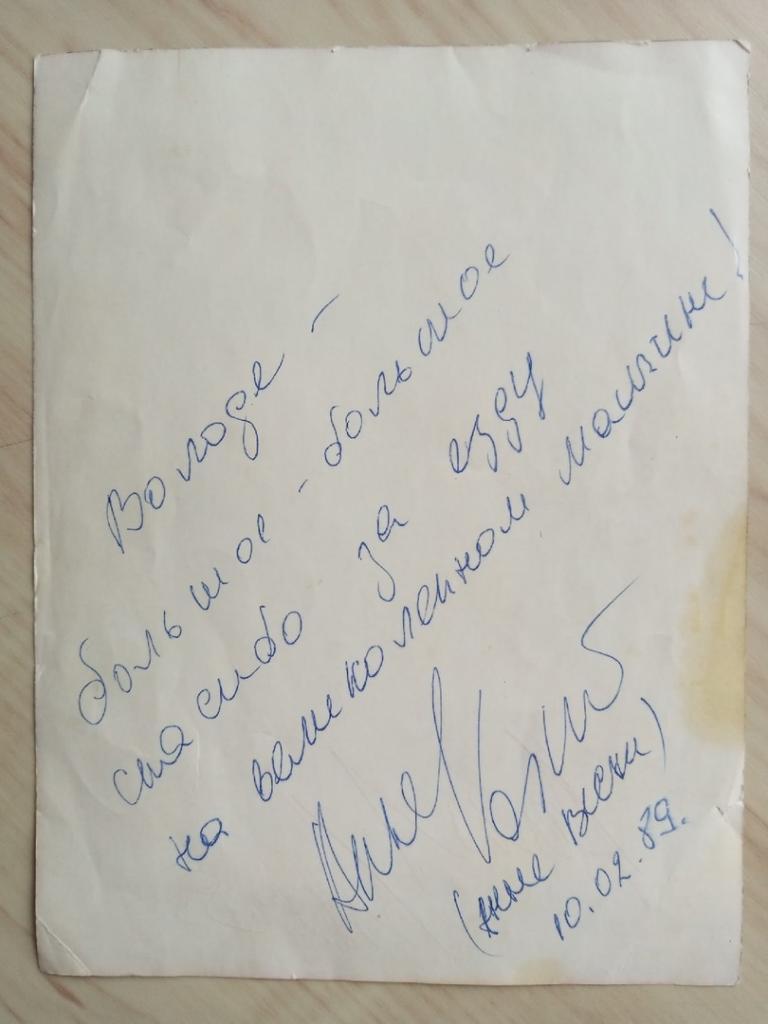 Володе –
большое - большое
спасибо за езду
на великолепном машине!
Анне Вески
(Анне Вески)
10.02.89.